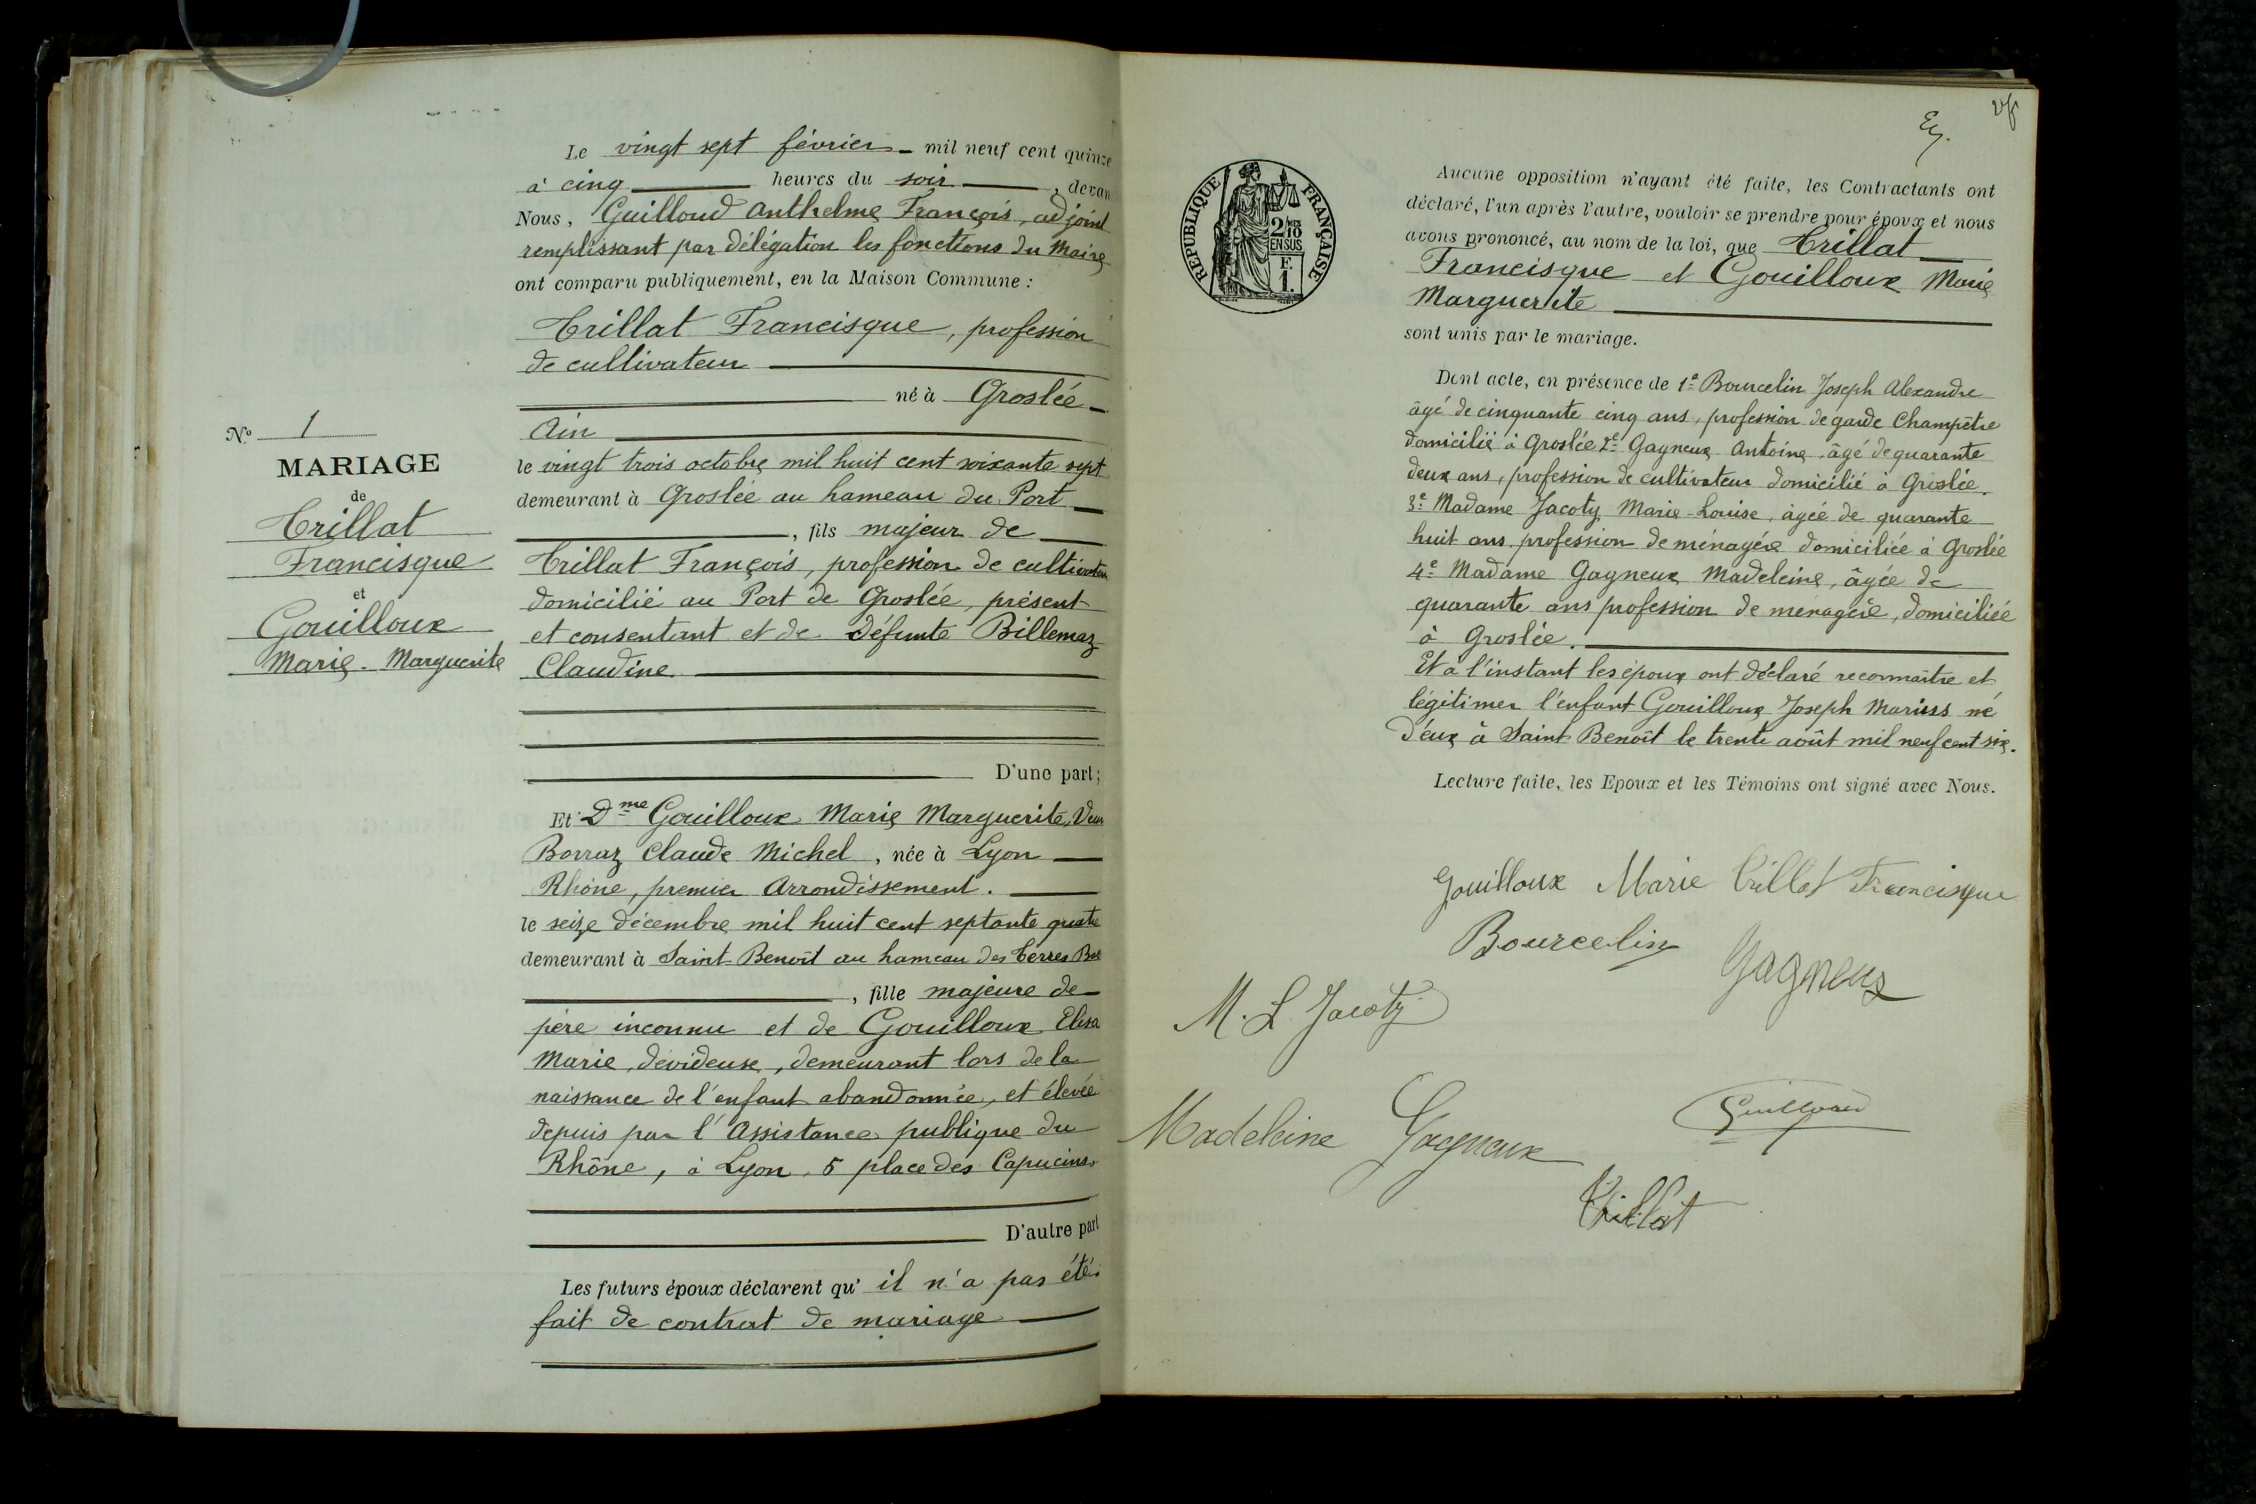 Le vingt sept février mil neuf cent quinze
à cinq heures du soir, devan
Nous, Guilloud Anthelme François, adjoint
remplissant par délégation les fonctions du Maire
ont comparu publiquement, en la Maison Commune :
Trillat Francisque, profession
de cultivateur
né à Groslée
Ain
le vingt trois octobre mil huit cent soixante sept
demeurant à Groslée au hameau du Port
, fils majeur de
Trillat François, profession de cultivateur
domicilié au Port de Groslée, présent
et consentant et de défunte Billemaz
Claudine
D'une part ;
Et Dme Gouilloux Marie Marguerite, Veuve
Borraz Claude Michel, née à Lyon
Rhône, premier Arrondissement.
le seize décembre mil huit cent septante quatre
demeurant à Saint Benoît au hameau des Terres Bas
, fille majeure de
père inconnu et de Gouilloux Elisa
Marie, dévideuse, demeurant lors de la
naissance de l'enfant abandonnée, et élevée
depuis par l'Assistance publique du
Rhône, à Lyon, 5 place des Capucins
D'autre part
Les futurs époux déclarent qu'il n'a pas été
fait de contrat de mariage
No 1
MARIAGE
de
Trillat
Francisque
et
Gouilloux
Marie-Marguerite
RÉPUBLIQUE FRANÇAISE
2/10
EN SUS
F.
1.
Aucune opposition n'ayant été faite, les Contractants ont
déclaré, l'un après l'autre, vouloir se prendre pour époux et nous
avons prononcé, au nom de la loi, que Trillat
Francisque et Gouilloux Marie
Marguerite
sont unis par le mariage.
Dont acte, en présence de 1e Bourcelin Joseph Alexandre
âgé de cinquante cinq ans, profession de garde Champêtre
domicilié à Groslée 2e Gagneux Antoine, âgé de quarante
deux ans, profession de cultivateur domicilié à Groslée.
3e Madame Jacoty Marie-Louise, âgée de quarante
huit ans profession de ménagère domiciliée à Groslée
4e Madame Gagneux Madeleine, âgée de
quarante ans profession de ménagère, domiciliée
à Groslée.
Et à l'instant les époux ont déclaré reconnaître et
légitimer l'enfant Gouilloux Joseph Marius né
d'eux à Saint Benoît le trente août mil neuf cent six.
Lecture faite, les Epoux et les Témoins ont signé avec Nous.
Gouilloux Marie Trillat Francisque
Bourcelin Gagneux
M. L. Jacoty
Madeleine Gagneux
Guilloud
Trillat